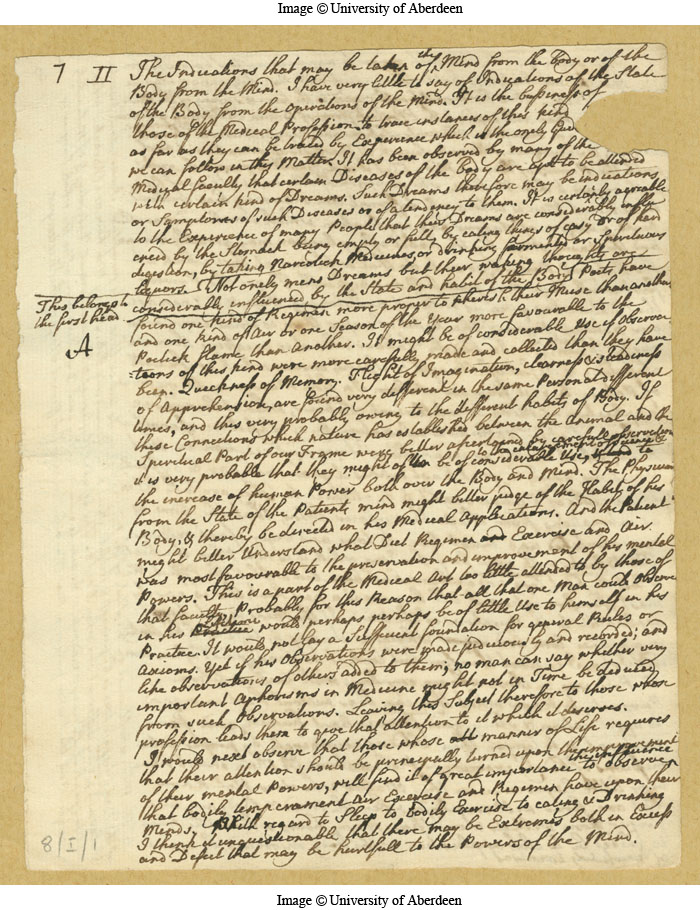 Image © University of Aberdeen
7 II The Indications that may be taken of the Mind from the body or of the
Body from the Mind. I have very little to say of Indications of the State
of the Body from the operations of the Mind. It is the business of
those of the Medical Profession to trace instances of this kind
as far as they can be traced by Experience which is the onely
we can follow in this Matter. It has been observed by many of the
Medical faculty that certain Diseases of the body are apt to be attended
with certain kind of Dreams. Such Dreams therefore may be indications
or Symptomes of such Diseases or of a tendency to them. It is certainly agreeable
to the Experience of many People that their Dreams are considerably influ
enced by the Stomach being empty or full, by eating things of easy or of hard
digestion, by taking Narcotick Medicines, or drinking fermented or Spirituous
liquors. Not onely mens Dreams but their waking thoughts are
This belongs to
the first head
A
considerably influenced by the State and habit of the Body Poets have
found one kind of Regimen more proper to their Muse than another
and one kind of Air or one Season of the Year more favourable to the
Poetick flame than Another. It might be of considerable Use if Observa
tions of this kind were more carefully made and collected than they have
been. Quickness of Memory. Flight of Imagination, clearness & steadiness
of Apprehension, are found very different in the same Person at different
times, and this very probably owing to the different habits of Body. If
these Connections which nature has established between the Animal and the
Spiritual Part of our Frame were better ascertained by careful observation
it is very probable that they might be of considerable Use to
the increase of human Power both over the Body and Mind. The Physician
from the State of the Patients mind might better judge of the Habit of his
Body, & thereby be directed in his Medical Applications. And the Patient
might better Understand what Diet Regimen and Exercise and Air
was most favourable to the preservation and improvement of his mental
Powers. This is a part of the Medical Art too little attended to by those of
that faculty. Probably for this Reason that all that one Man could observe
in his Practice would perhaps perhaps be of little Use to himself in his
Practice. It would not lay a sufficient foundation for general Rules or
Axioms. Yet if his Observations were made judiciously and recorded; and
like observations of others added to them; no man can say whether very
important Aphorisms in Medicine might not in Time be deduced
from such Observations. Leaving this Subject therefore to those whose
profession leads them to give that attention to it which it deserves.
I would next observe that those whose manner of Life requires
that their attention should be principally turned upon the improvement
of their mental Powers, will find it of great importance to observe the influence
that bodily temperament Air Exercise and Regimen have upon their
Minds. With regard to Sleep to bodily Exercise to eating & Drinking
I think it unquestionable that there may be Extremes both in Excess
and Defect that may be hurtfull to the Powers of the Mind.
8/I/1
Image © University of Aberdeen